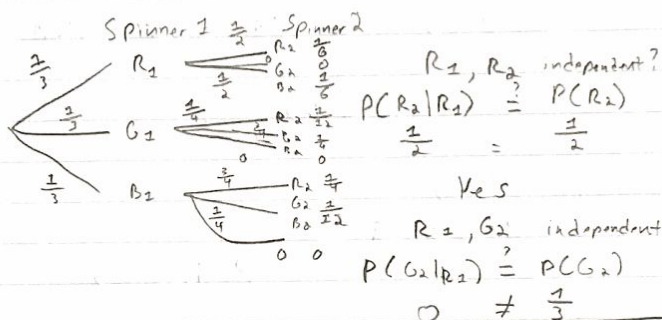 Spinner 1 Spinner 2
1/3 R1 1/2 R2 1/6
0 G2 0
1/2 B2 1/6
1/3 G1 1/4 R2 1/12
3/4 G2 1/4
0 B2 0
1/3 B1 3/4 R2 1/4
1/4 G2 1/12
B2
0 0
R1, R2 independent?
P(R2|R1) ?= P(R2)
1/2 = 1/2
Yes
R1, G2 independent
P(G2|R1) ?= P(G2)
0 ≠ 1/3